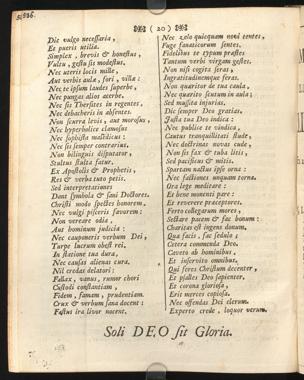 ( 20 )
Dic vulgo necessaria,
Et pueris utilia.
Simplex, brevis & honestus,
Vultu, gestu sis modestus.
Nec uteris locis mille,
Aut verbis aulæ, fori, villæ:
Nec te ipsum laudes superbe,
Nec pungas alios acerbe.
Nec sis Thersites in regentes,
Nec debacheris in absentes.
Non feurra levis, aut morosus,
Nec hyperbolice clamosus
Nec sophista maledicus:
Nec sis semper contrarius.
Non bilinguis disputator,
Stultus fulta fatur.
Ex Apostolis & Prophetis,
Res & verba tuto petis.
Sed interpretationes
Dant symbola & sani Doctores.
Christi modo spectes honorem,
Nec vulgi pisceris favorem:
Non vereare odia,
Aut hominum judicia:
Nec cauponeris verbum Dei,
Turpe lucrum obest rei.
In statione tua dura,
Nec causas alienas cura.
Nil credas delatori:
Fallax, vanus, rumor chori
Custodi constantiam,
Fidem, famam, prudentiam.
Crux & verbum sana decent:
Fastus ira livor nocent.
Nec zelo quicquam novi tentes,
Fuge fanaticorum sentes.
Fidelibus te typum præstes
Tantum verbi virgam gestes.
Non nisi cogita feras,
Ingratitudinemque feras.
Non quæritor de tua caula,
Nec quærito scutum in aula:
Sed mussita injurias.
Dic semper Deo gratias.
Justa tua Deo indica:
Nec publice te vindica,
Cautus tranquillitati stude,
Nec doctrinas novas cude,
Non sis fax & tuba litis,
Sed pacificus & mitis.
Spartam nactus ipse orna:
Nec factiones unquam torna.
Ora lege meditare:
Et bene monenti pare:
Et reverere præceptores.
Ferto collegarum mores.
Sectare pacem & fac bonum:
Charitas est ingens donum.
Qua facis, fac sedula;
Cetera commenda Deo.
Caveto ab hominibus,
Et inservito omnibus.
Qui feres Christum docenter,
Et psalles Deo sapienter,
Et corona gloriosa,
Erit merces copiosa.
Nec offendas Dei clerum.
Experto crede, loquor verum.
Soli DEO sit Gloria.